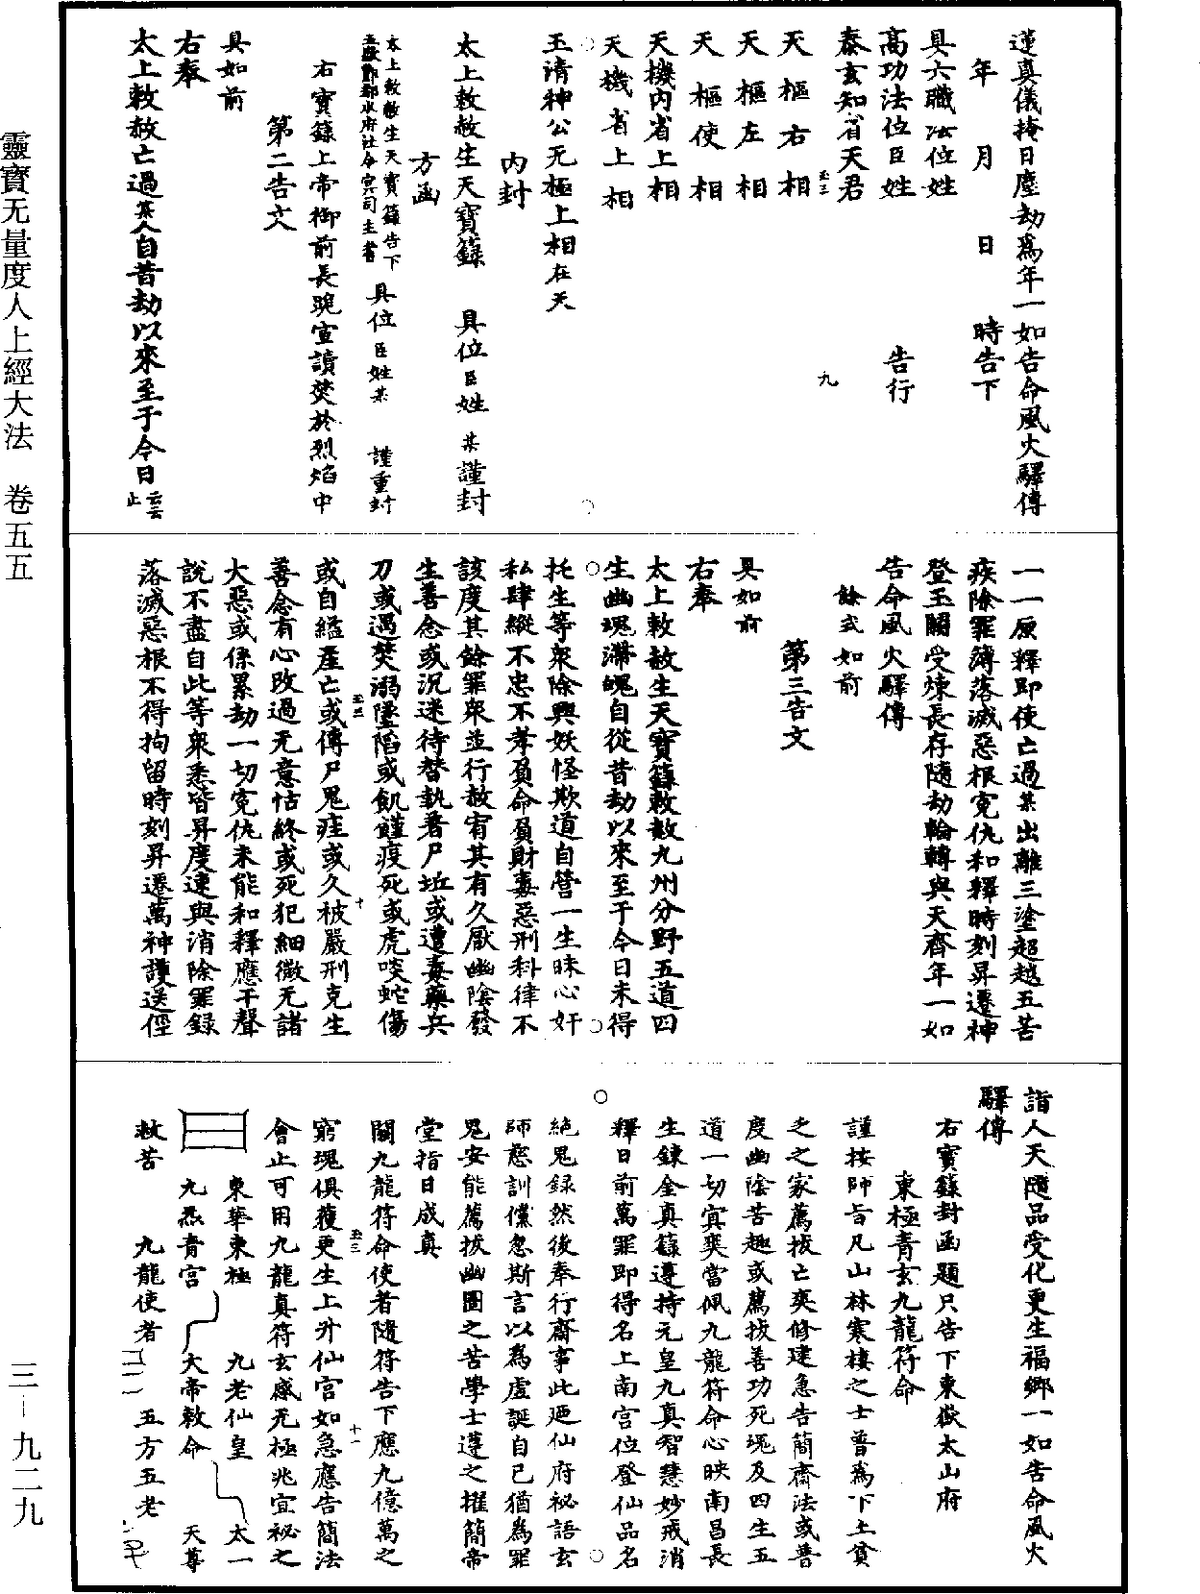 違真儀掩日塵劫爲年一如告命風火驛傳
年　月　日　時告下
具六職法位姓
高功法位臣姓　告行
泰玄知省天君
天樞右相
天樞左相
天樞使相
天機內省上相
天機省上相
玉清神公无極上相在天
內封
太上敕赦生天寶籙　具位臣姓某謹封
方函
太上敕赦生天寶籙告下
具位臣姓某　謹重封
右寶籙上帝御前長跪宣讀焚於烈焰中
第二告文
具如前
右奉
太上敕赦亡過某人自昔劫以來至于今日云云止
一一原釋即使亡過某出離三塗超越五苦
疾除罪簿落滅惡根寃仇和釋時刻昇遷神
登玉闕受煉長存隨劫輪轉與天齊年一如
告命風火驛傳
餘式如前
第三告文
具如前
右奉
太上敕赦生天寶籙敕赦九州分野五道四
生幽魂滯魄自從昔劫以來至于今日未得
托生等衆除興妖怪欺道自營一生昧心奸
私肆縱不忠不孝負命負財毒惡刑科律不
該度其餘罪衆並行赦宥其有久厭幽陰發
生善念或沉迷待替執著尸坵或遭毒藥兵
刀或遇焚溺墜陷或飢饉疫死或虎啖蛇傷
或自縊產亡或傳尸鬼疰或久被嚴刑克生
善念有心改過无意怙終或死犯細微无諸
大惡或係累劫一切寃仇未能和釋應干聲
說不盡自此等衆悉皆昇度速與消除罪録
落滅惡根不得拘留時刻昇遷萬神護送徑
詣人天隨品受化更生福鄉一如告命風火
驛傳
右寶籙封函題只告下東嶽太山府
東極青玄九龍符命
謹按師旨凡山林寒棲之士普爲下土貧
乏之家薦拔亡爽修建急告簡齋法或普
度幽陰苦趣或薦拔善功死魂及四生五
道一切寘爽當佩九龍符命心映南昌長
生鍊金真籙遵持元皇九真智慧妙戒消
釋日前萬罪即得名上南宮位登仙品名
絕鬼録然後奉行齋事此廼仙府祕語玄
師慈訓儻忽斯言以爲虛誕自已猶爲罪
鬼安能薦拔幽圄之苦學士遵之擢簡帝
堂指日成真
關九龍符命使者隨符告下應九億萬之
窮魂俱獲更生上升仙宮如急應告簡法
會止可用九龍真符玄感无極兆宜祕之
東華東極　九老仙皇　太一
九炁青宮　大帝敕命　天尊
救苦　九龍使者　五方五老
靈寶无量度人上經大法　卷五五
三－九二九